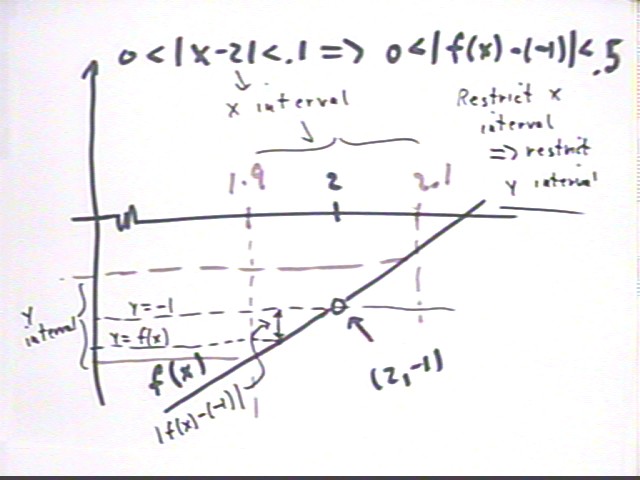 0 < |x-2| < .1 => 0 < |f(x)-(-1)| < .5
x interval
Restrict x
interval
=> restrict
y interval
1.9 2 2.1
y interval
y = -1
y = f(x)
f(x)
(2,-1)
|f(x)-(-1)|